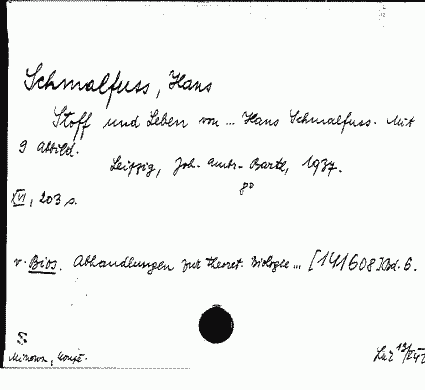 Schmalfuss, Hans
Stoff und Leben von ... Hans Schmalfuss. Mit
9 Abbild.
Leipzig, Joh. Ambr. Barth, 1937.
8°
XVI, 203 s.
v. Bios. Abhandlungen zur theoret. Biologie ... [141608] Bd. 6.
S